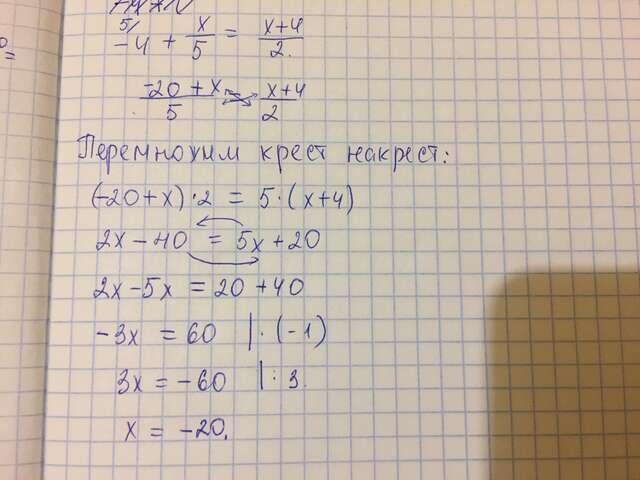 5/
-4 + x/5 = x+4/2.
-20 + x/5 = x+4/2
Перемножим крест накрест:
(-20+x)·2 = 5·(x+4)
2x - 40 = 5x + 20
2x - 5x = 20 + 40
-3x = 60 |·(-1)
3x = -60 |:3.
x = -20.